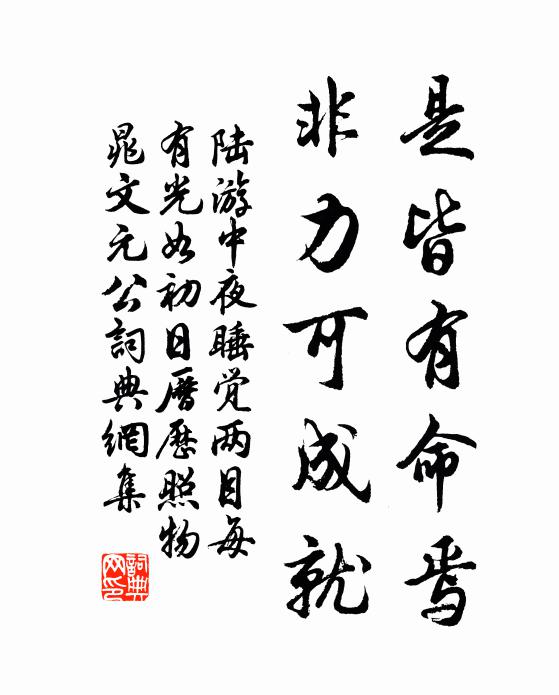 是皆有命焉
非力可成就
陆游中夜睡觉两目每
有光如初日历历照物
晁文元公詞典網集
詞典网印